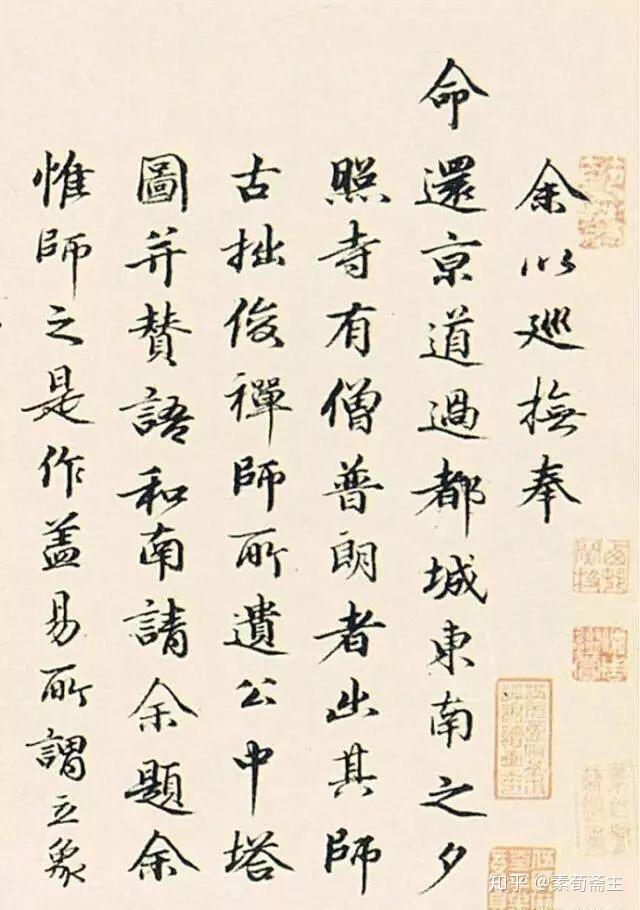 余以巡撫奉
命還京道過都城東南之夕
照寺有僧普朗者出其師
古拙俊禪師所遺公中塔
圖并賛語和南請余題余
惟師之是作盖易所謂立象
知乎 @素荀斋主